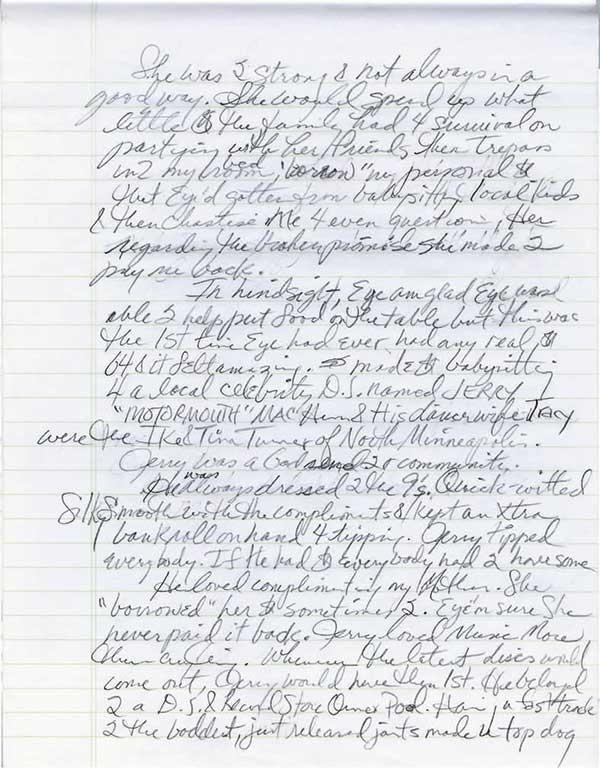 She was 2 strong & not always in a
good way. She would spend up what
little $ the family had 4 survival on
partying with her friends then trespass
in2 my bedroom, "borrow" my personal $
that Eye'd gotten from babysitting local kids
& then chastise Me 4 even questioning Her
regarding the broken promise she made 2
pay me back.
In hindsight, Eye am glad Eye was
able 2 help put food on the table but this was
the 1st time Eye had ever had any real $
& it felt amazing. made $ babysitting
4 a local celebrity D.J. named JERRY
"MOTORMOUTH" MAC. He & His dancer wife TRACY
were the Ike & Tina Turner of North Minneapolis.
Jerry was a God send 2 r community.
He was always dressed 2 the 9's. Quick-witted
Silk Smooth with the compliments & kept an Xtra
bankroll on hand 4 tipping. Jerry tipped
everybody. If He had $ everybody had 2 have some
He loved complimenting my Mother. She
"borrowed" her $ sometimes 2. Eye'm sure She
never paid it back. Jerry loved Music More
than anything. Whenever the latest discs would
come out, Jerry would have them 1st. He belonged
2 a D.J. & Record Store Owner Pool. Having "as" "track"
2 the baddest, just released jams made u top dog